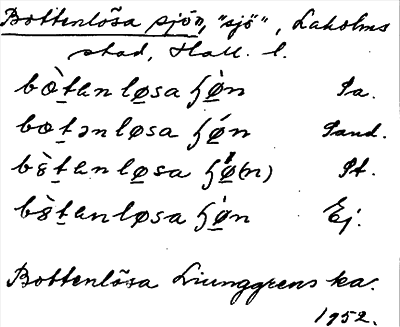 Bottenlösa sjön, "sjö", Laholms
stad, Hall. l.
bòtanløsa ɧø̀n Sa.
botənløsa ɧǿn Sand.
bòtanløsa ɧǿ(n) St.
bòtanløsa ɧø̀n Ej.
Bottenlösa Ljunggrens ka.
1952.